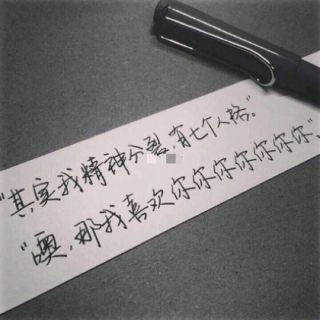 “其实我精神分裂，有七个人格。”
“噢，那我喜欢你你你你你你你”